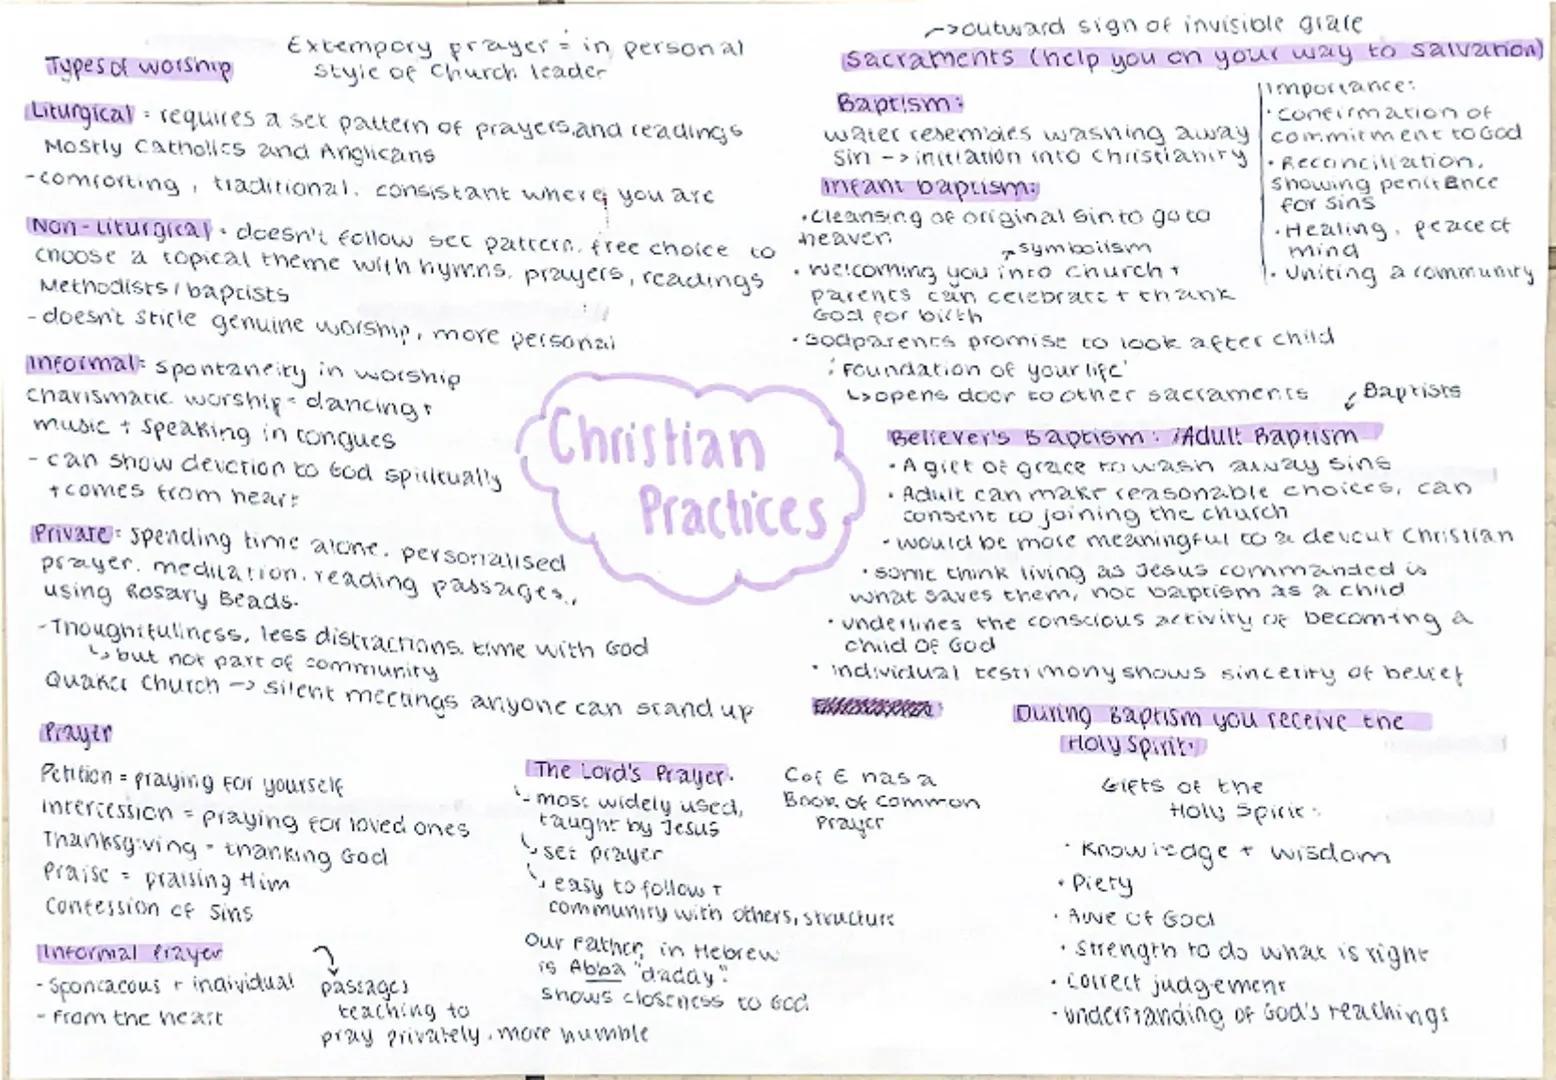 Types of worship
Extempory prayer = in personal
style of Church leader
Liturgical = requires a set pattern of prayers and readings
Mostly Catholics and Anglicans
- comforting, traditional, consistant where you are
Non-Liturgical = doesn't follow set pattern, free choice to
choose a topical theme with hymns, prayers, readings
Methodists / baptists
- doesn't stifle genuine worship, more personal
Informal = spontaneity in worship
charismatic worship - dancing +
music + speaking in tongues
- can show devotion to God spiritually
+ comes from heart
Private = spending time alone, personalised
prayer, meditation, reading passages,
using Rosary Beads.
- Thoughtfullness, less distractions, time with God
↳ but not part of community
Quaker Church -> silent meetings anyone can stand up
Prayer
Petition = praying for yourself
Intercession = praying for loved ones
Thanksgiving = thanking God
Praise = praising Him
Confession of Sins
Informal Prayer
- Spontaeous + individual
- From the heart
passages
teaching to
pray privately, more humble
Christian
Practices
The Lord's Prayer:
↳ most widely used,
taught by Jesus
↳ set prayer
↳ easy to follow +
community with others, structure
Our Father, in Hebrew
is Abba "daddy".
shows closeness to God
C of E has a
Book of Common
Prayer
-> outward sign of invisible grace
Sacraments (help you on your way to salvation)
Baptism:
water resembles washing away
sin -> initiation into Christianity
Infant baptism:
• Cleansing of original sin to go to
heaven
symbolism
• welcoming you into church +
parents can celebrate + thank
God for birth
• Godparents promise to look after child
'Foundation of your life'
↳ opens door to other sacraments
Importance:
• Confirmation of
commitment to God
• Reconciliation,
showing penitence
for sins
• Healing, peace of
mind
• Uniting a community
Baptists
Believer's Baptism: / Adult Baptism
• A gift of grace to wash away sins
• Adult can make reasonable choices, can
consent to joining the church
• would be more meaningful to a devout Christian
• some think living as Jesus commanded is
what saves them, not baptism as a child
• underlines the conscious activity of becoming a
child of God
• individual testimony shows sincerity of belief
During Baptism you receive the
Holy Spirit:
Gifts of the
Holy Spirit:
• Knowledge + wisdom
• Piety
• Awe of God
• Strength to do what is right
• correct judgement
- understanding of God's teachings